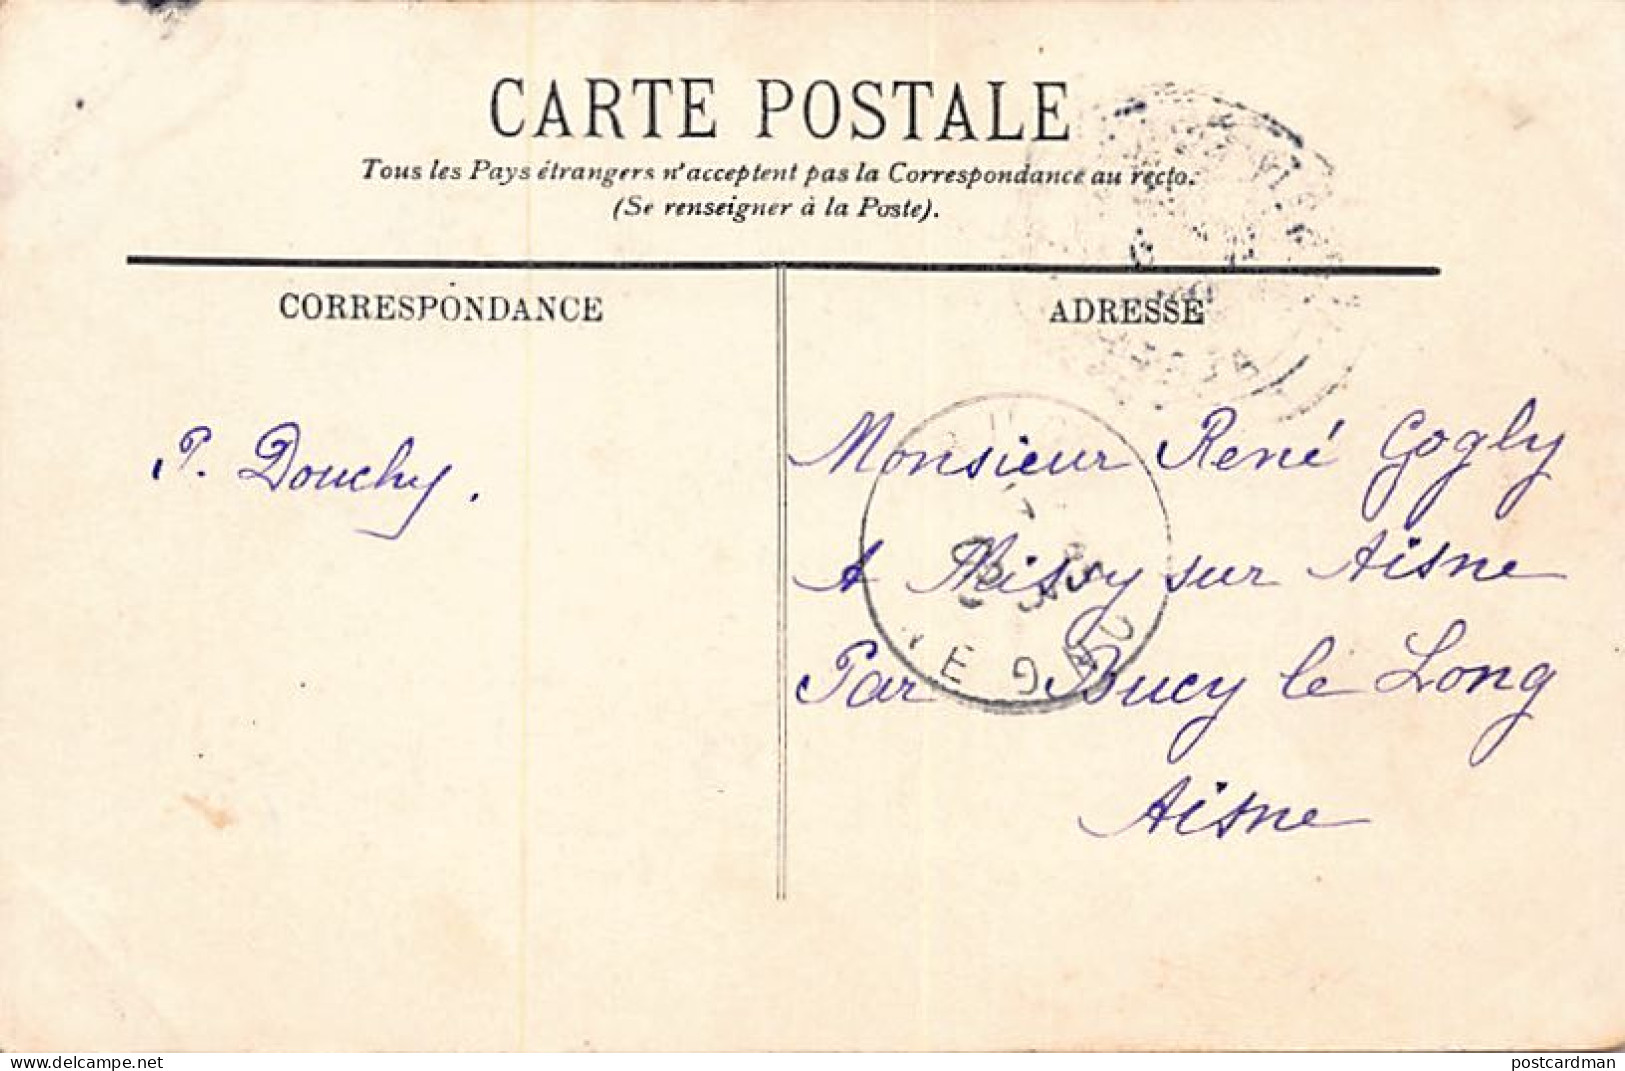 CARTE POSTALE
Tous les Pays étrangers n'acceptent pas la Correspondance au recto.
(Se renseigner à la Poste).
CORRESPONDANCE
ADRESSE
P. Douchy.
Monsieur René Gogly
A Missy sur Aisne
Par Bucy le Long
Aisne
www.delcampe.net
postcardman